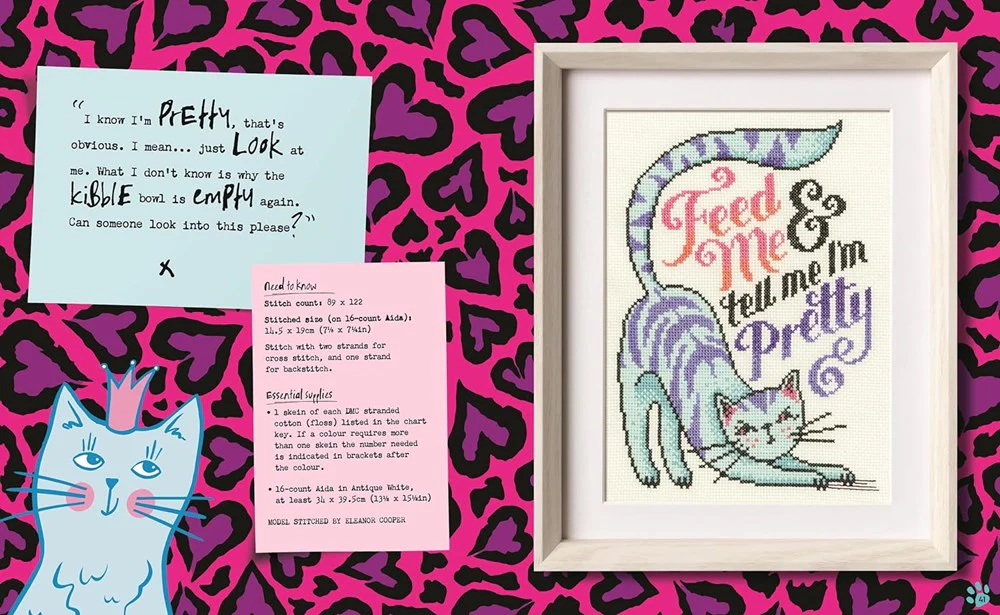 “I know I'm PrEttY, that's
obvious. I mean... just LOOK at
me. What I don't know is why the
kiBBlE bowl is EmPtY again.
Can someone look into this please?”
X
Need to know
Stitch count: 89 x 122
Stitched size (on 16-count Aida):
14.5 x 19cm
Stitch with two strands for
cross stitch, and one strand
for backstitch.
Essential supplies
• 1 skein of each DMC stranded
cotton (floss) listed in the chart
key. If a colour requires more
than one skein the number needed
is indicated in brackets after
the colour.
• 16-count Aida in Antique White,
at least 34 x 39.5cm
MODEL STITCHED BY ELEANOR COOPER
Feed
Me &
tell me I'm
Pretty
41